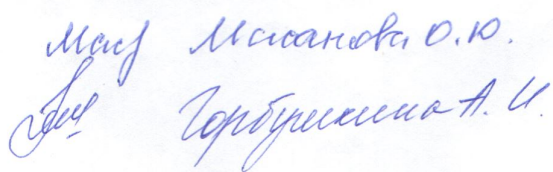 Маканова О.Ю.
Горбушкина А.И.